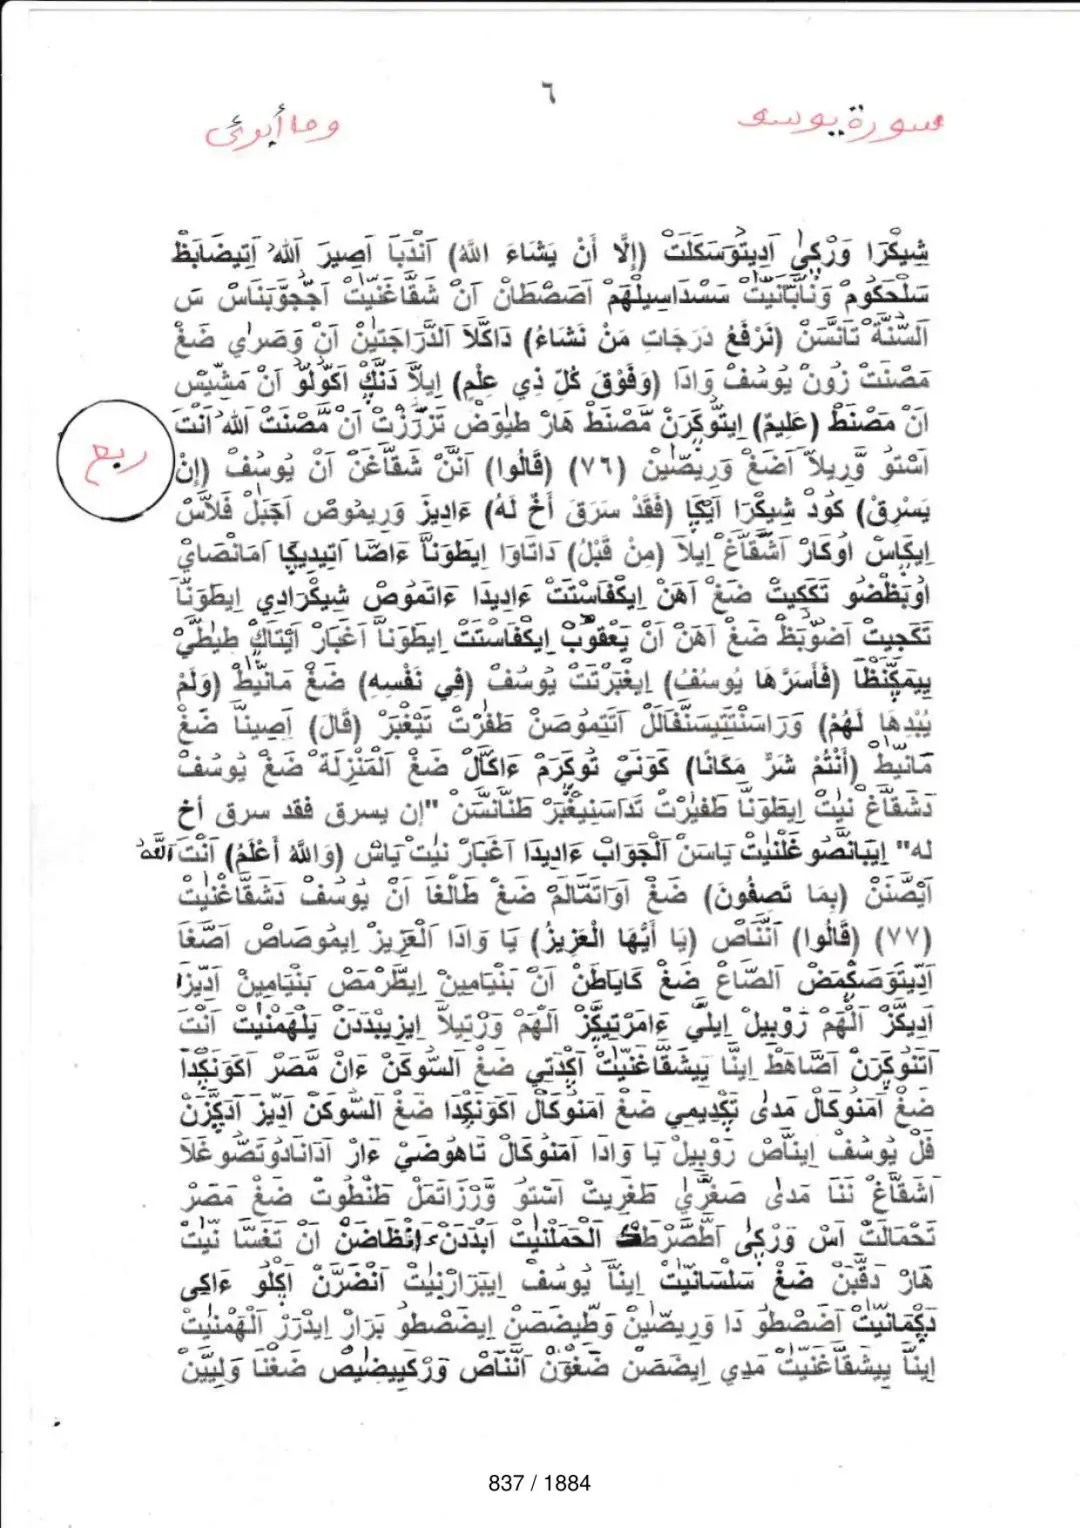 ٦
سورة يوسو
وما أبرئ
شِيكْرَا وَرْكِىٰ آدِيتَوَسَكَلَتْ (إِلَّا أَنْ يَشَاءَ اللَّهُ) آنْدَبَا آصِيرَ اللهْ اَتِيضَابَظْ
سَلْحَكُومْ وَنَابَّانَيّتْ سَسْدَاسِيلْهَمْ اَصَصْطَانْ اَنْ شَقَّاغَنَيّتْ اَجَّجوَّبْنَاسْ سَ
اَلسُّنَّةْ تَانَسَّنْ (نَرْفَعُ دَرَجَاتٍ مَنْ نَشَاءُ) دَاكَلاَ اَلدَّرَاجَتَيْنْ اَنْ وَصَرٰي ضَغْ
مَصْنَتْ زُونْ يُوسُفْ وَادَا (وَفَوْقَ كُلِّ ذِي عِلْمٍ) اِيلاَّ دَنَّكْ اَكُّولُّو اَنْ مَشَّيْسْ
اَنْ مَصْنَطْ (عَلِيمٌ) اِيتَّوكَرَنْ مَّصْنَطْ هَارْ طَيَوَضْ تَزَّرْزَتْ اَنْ مَّصْنَتْ اَللهْ اَنْتَ
اَسْتوُ وَّرِيلاَ اَضَغْ وَرِيصَّيْنْ (٧٦) (قَالُوا) اَنَّنْ شَقَّاغَنْ اَنْ يُوسُفْ (إِنْ
ربع
يَسْرِقْ) كُودْ شِيكْرَا اَيْكَا (فَقَدْ سَرَقَ أَخٌ لَهُ) ءَادِيزْ وَرِيمُوصْ اَجَبَلْ فَلاَّسْ
اِيكَاسْ اوُكَارْ اَشَّقَّاغْ اِيلاَ (مِنْ قَبْلُ) دَاتَاوَا اِيطَوَنَاَّ ءَاضَا اَتِيدِيكَا اَمَانْصَايْ
اوُبَظْضُو تَكَكِيتْ ضَغْ اَهَنْ اِيكْفَاسْتَتْ ءَادِيدَا ءَاتَمُوصْ شِيكْرَادِي اِيطَوَنَاَّ
تَكَجِيتْ اَضُوّبَظْ ضَغْ اَهَنْ اَنْ يَعْقُوبْ اِيكْفَاسْتَتْ اِيطَوَنَاَّ اَغْبَارْ اَيْتَاكْ طَيطَيْ
يِيمَكَّنْظَا (فَأَسَرَّهَا يُوسُفُ) اِيغْبَرْتَتْ يُوسُفْ (فِي نَفْسِهِ) ضَغْ مَانَيَّطْ (وَلَمْ
يُبْدِهَا لَهُمْ) وَرَاسَنْتَتِيسَنْفَالَلْ اَتَتِمُوصَنْ طَفَرْتْ تَيْغْبَرْ (قَالَ) اِصِينَاَّ ضَغْ
مَانَيَّطْ (أَنْتُمْ شَرٌّ مَكَانًا) كَوَنَيْ تُوكَرَمْ ءَاكَالْ ضَغْ اَلْمَنْزِلَةْ ضَغْ يُوسُفْ
دَشَقَّاغْ نَيْتْ اِيطَوَنَاَّ طَفَيْرْتْ تَدَاسَنِيغْبَرْ طَنَانَسَّنْ "إن يسرق فقد سرق أخ
له" اِيبَانَّصُو غَلْنَيْتْ يَاسَنْ اَلْجَوَابْ ءَادِيدَا اَغْبَارْ نَيْتْ يَاسْ (وَاللَّهُ أَعْلَمُ) اَنْتَ اَللهْ
اَيْصَّنَنْ (بِمَا تَصِفُونَ) ضَغْ اَوَاتَمَّالَمْ ضَغْ طَالَغَا اَنْ يُوسُفْ دَشَقَّاغْنَيْتْ
(٧٧) (قَالُوا) اَنَّنَاصْ (يَا أَيُّهَا الْعَزِيزُ) يَا وَادَا اَلْعَزِيزْ اِيمُوصَاصْ اَصَّغَا
اَدِّيتَوَصَكْمَضْ اَلصَّاعْ ضَغْ كَايَاطَنْ اَنْ بَنْيَامِينْ اِيظَّرْمَصْ بَنْيَامِينْ اَدِّيزَا
اَدِيكَّزْ اَلْهَمْ رُوبِيلْ اِيلَيْ ءَامَرْتِيكَّزْ اَلْهَمْ وَرْتِيلاَّ اِيزِيبْدَدَنْ يَلْهَمْنَيْتْ اَنْتَ
اَتَنُوكَرَنْ اَصَّاهَطْ اِينَا يِيشَقَّاغَنَيّتْ اَكِّدَتِي ضَغْ اَلسُّوكَنْ ءَانْ مَّصَرْ اَكَوَنَكِّدَا
ضَغْ اَمَنُوكَالْ مَدٰى تَكَّدِيمِي ضَغْ اَمَنُوكَالْ اَكَوَنَكِّدَا ضَغْ اَلسُّوكَنْ اَدِّيزَ اَدَكَّزَنْ
فَلْ يُوسُفْ اِينَّاصْ رُوبِيلْ يَا وَادَا اَمَنُوكَالْ تَاهُوضَيْ ءَارْ اَدَانَادُوتَصُّو غَلاَ
اَشَقَّاغْ نَنَا مَدٰى صَغَرَّي طَغَرِيتْ اَسْتوُ وَّرْزَاتَمَلْ طَنْطُوتْ ضَغْ مَصَرْ
تَحَمَالَتْ اَسْ وَرْكِىٰ اَطَّصَّرْطَكْ اَلْحَمَلْنَيْتْ اَبْدَدَنْ ءَانْظَاضَنْ اَنْ تَغَسَّا نَيّتْ
هَارْ دَقَّبَنْ ضَغْ سَلْسَانَيّتْ اِينَاَّ يُوسُفْ اِيبَرَارْنَيْتْ اَنْضَرَّنْ اَكْلُو ءَاكِي
دَكْمَانَيّتْ اَضَصْطُو دَا وَرِيصَّيْنْ وَطَّيضَصَنْ اِيضَصْطُو بَرَارْ اِيدْرَرْ اَلْهَمْنَيْتْ
اِينَاَّ يِيشَقَّاغَنَيّتْ مَدِي اِيضَصَنْ ضَغْوَنْ اَنَّنَاصْ وَرْكَيِيضَيْصْ ضَغْنَا وَلِيَّيْنْ
837 / 1884